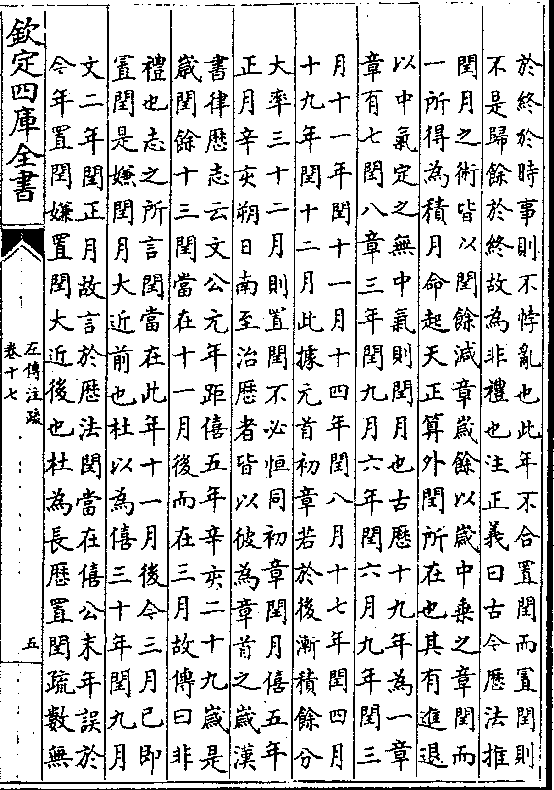 於終於時事則不悖亂也此年不合置閏而置閏則
不是歸餘於終故為非禮也注正義曰古今厯法推
閏月之術皆以閏餘減章歲餘以歲中乘之章閏而
一所得為積月命起天正算外閏所在也其有進退
以中氣定之無中氣則閏月也古厯十九年為一章
章有七閏八章三年閏九月六年閏六月九年閏三
月十一年閏十一月十四年閏八月十七年閏四月
十九年閏十二月此據元首初章若於後漸積餘分
大率三十二月則置閏不必恒同初章閏月僖五年
正月辛亥朔日南至治厯者皆以彼為章首之歲漢
書律厯志云文公元年距僖五年辛亥二十九歲是
歲閏餘十三閏當在十一月後而在三月故傳曰非
禮也志之所言閏當在此年十一月後今三月已即
置閏是嫌閏月大近前也杜以為僖三十年閏九月
文二年閏正月故言於厯法閏當在僖公末年誤於
今年置閏嫌置閏大近後也杜為長厯置閏疏數無
欽定四庫全書
左傳注疏
卷十七
五